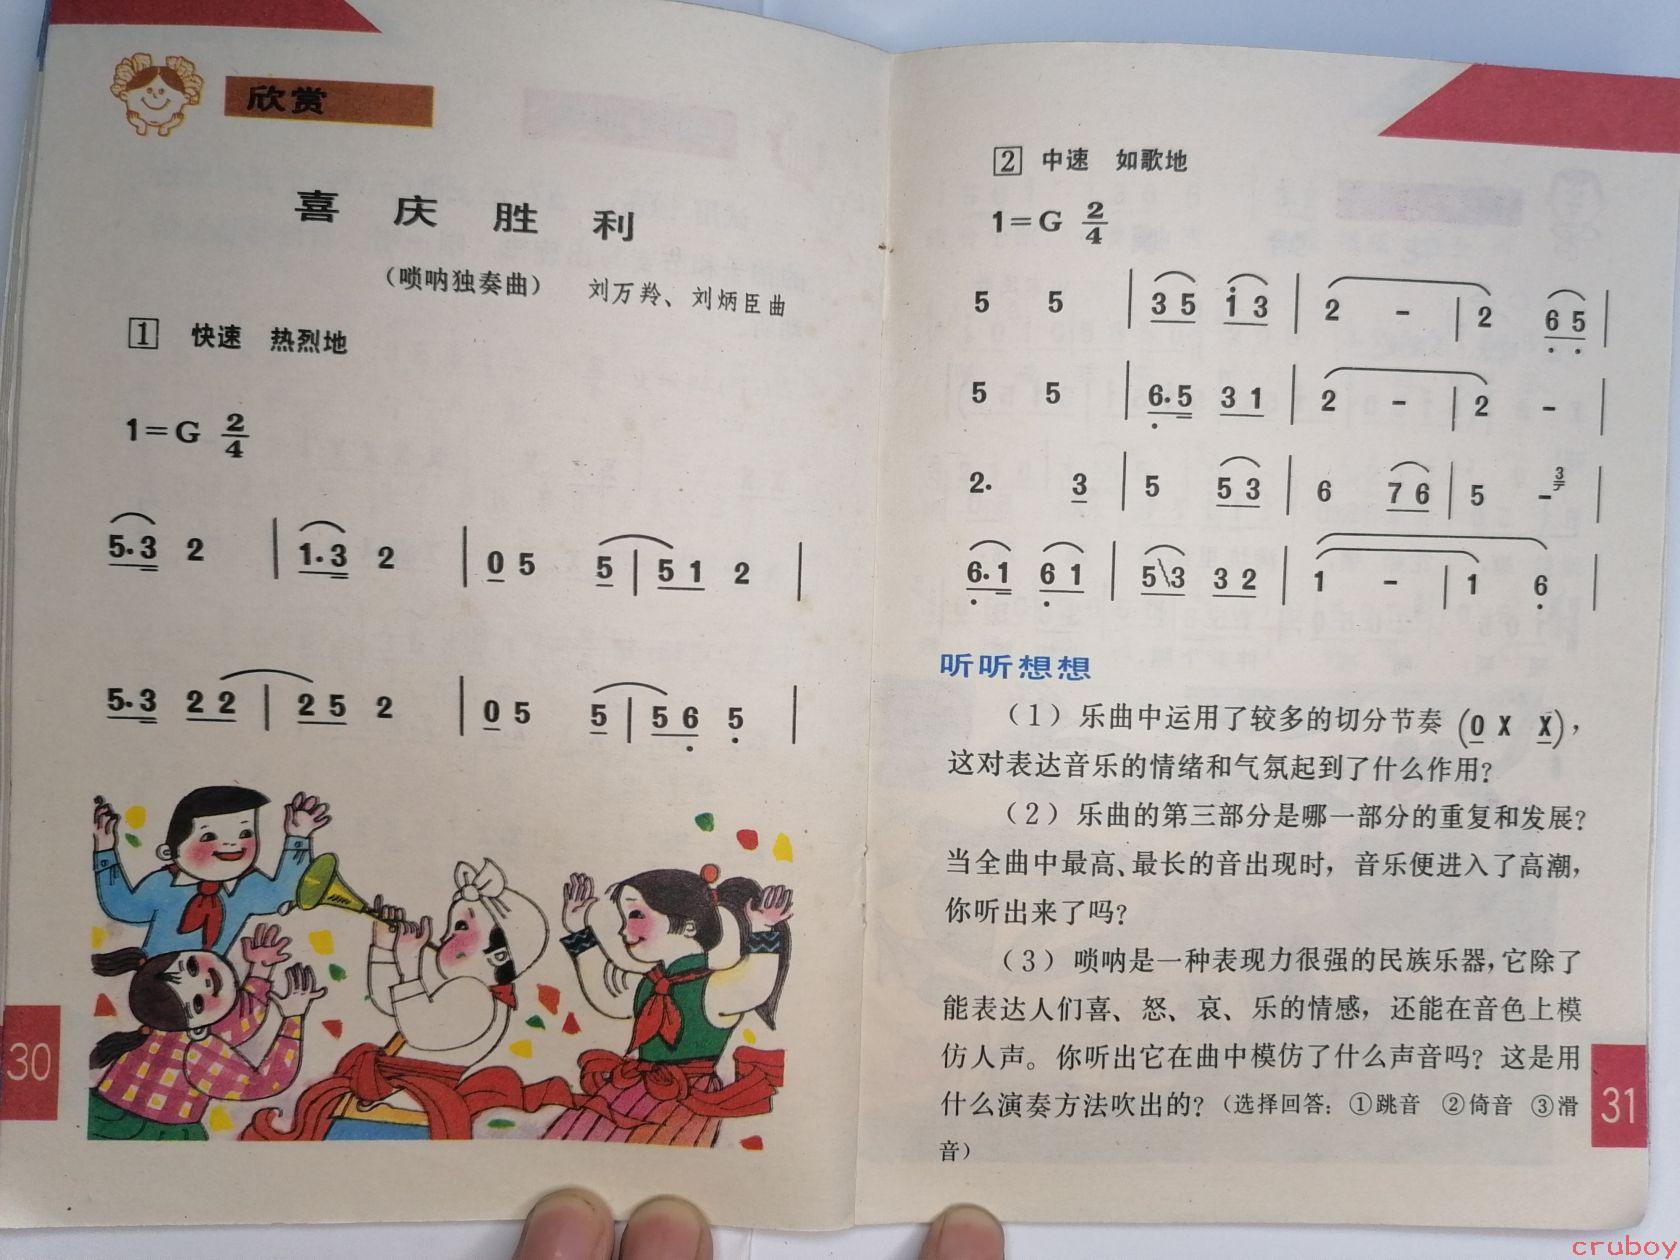 欣赏
喜庆胜利
（唢呐独奏曲） 刘万羚、刘炳臣曲
1 快速 热烈地
1=G 2/4
5.3 2 | 1.3 2 | 0 5 5 | 5 1 2 |
5.3 2 2 | 2 5 2 | 0 5 5 | 5 6 5 |
30
2 中速 如歌地
1=G 2/4
5 5 | 3 5 i 3 | 2 - | 2 6 5 |
5 5 | 6.5 3 1 | 2 - | 2 - |
2. 3 | 5 5 3 | 6 7 6 | 5 - 3 |
6.1 6 1 | 5\3 3 2 | 1 - | 1 6 |
听听想想
（1）乐曲中运用了较多的切分节奏（0 X X），
这对表达音乐的情绪和气氛起到了什么作用？
（2）乐曲的第三部分是哪一部分的重复和发展？
当全曲中最高、最长的音出现时，音乐便进入了高潮，
你听出来了吗？
（3）唢呐是一种表现力很强的民族乐器，它除了
能表达人们喜、怒、哀、乐的情感，还能在音色上模
仿人声。你听出它在曲中模仿了什么声音吗？这是用
什么演奏方法吹出的？（选择回答：①跳音 ②倚音 ③滑
音）
31
cruboy